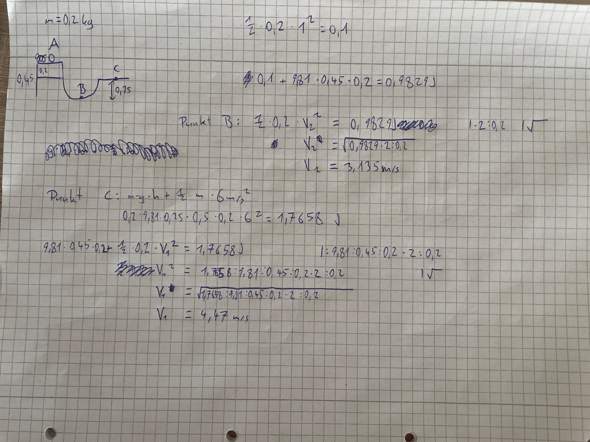 m = 0,2 kg
1/2 · 0,2 · 1² = 0,1
A
0,2
C
0,45
B
0,75
0,1 + 9,81 · 0,45 · 0,2 = 0,9829 J
Punkt B: 1/2 · 0,2 · V₂² = 0,9829 J | · 2 : 0,2 | √
V₂ = √0,9829 · 2 : 0,2
V₂ = 3,135 m/s
Punkt C: m · g · h + 1/2 m · 6 m/s²
0,2 · 9,81 · 0,75 · 0,5 · 0,2 · 6² = 1,7658 J
9,81 · 0,45 · 0,2 + 1/2 · 0,2 · V₁² = 1,7658 J | : 9,81 · 0,45 · 0,2 · 2 : 0,2
V₁² = : 9,81 · 0,45 · 0,2 · 2 : 0,2 | √
V₁ = √1,7658 : 9,81 · 0,45 · 0,2 · 2 : 0,2
V₁ = 4,47 m/s